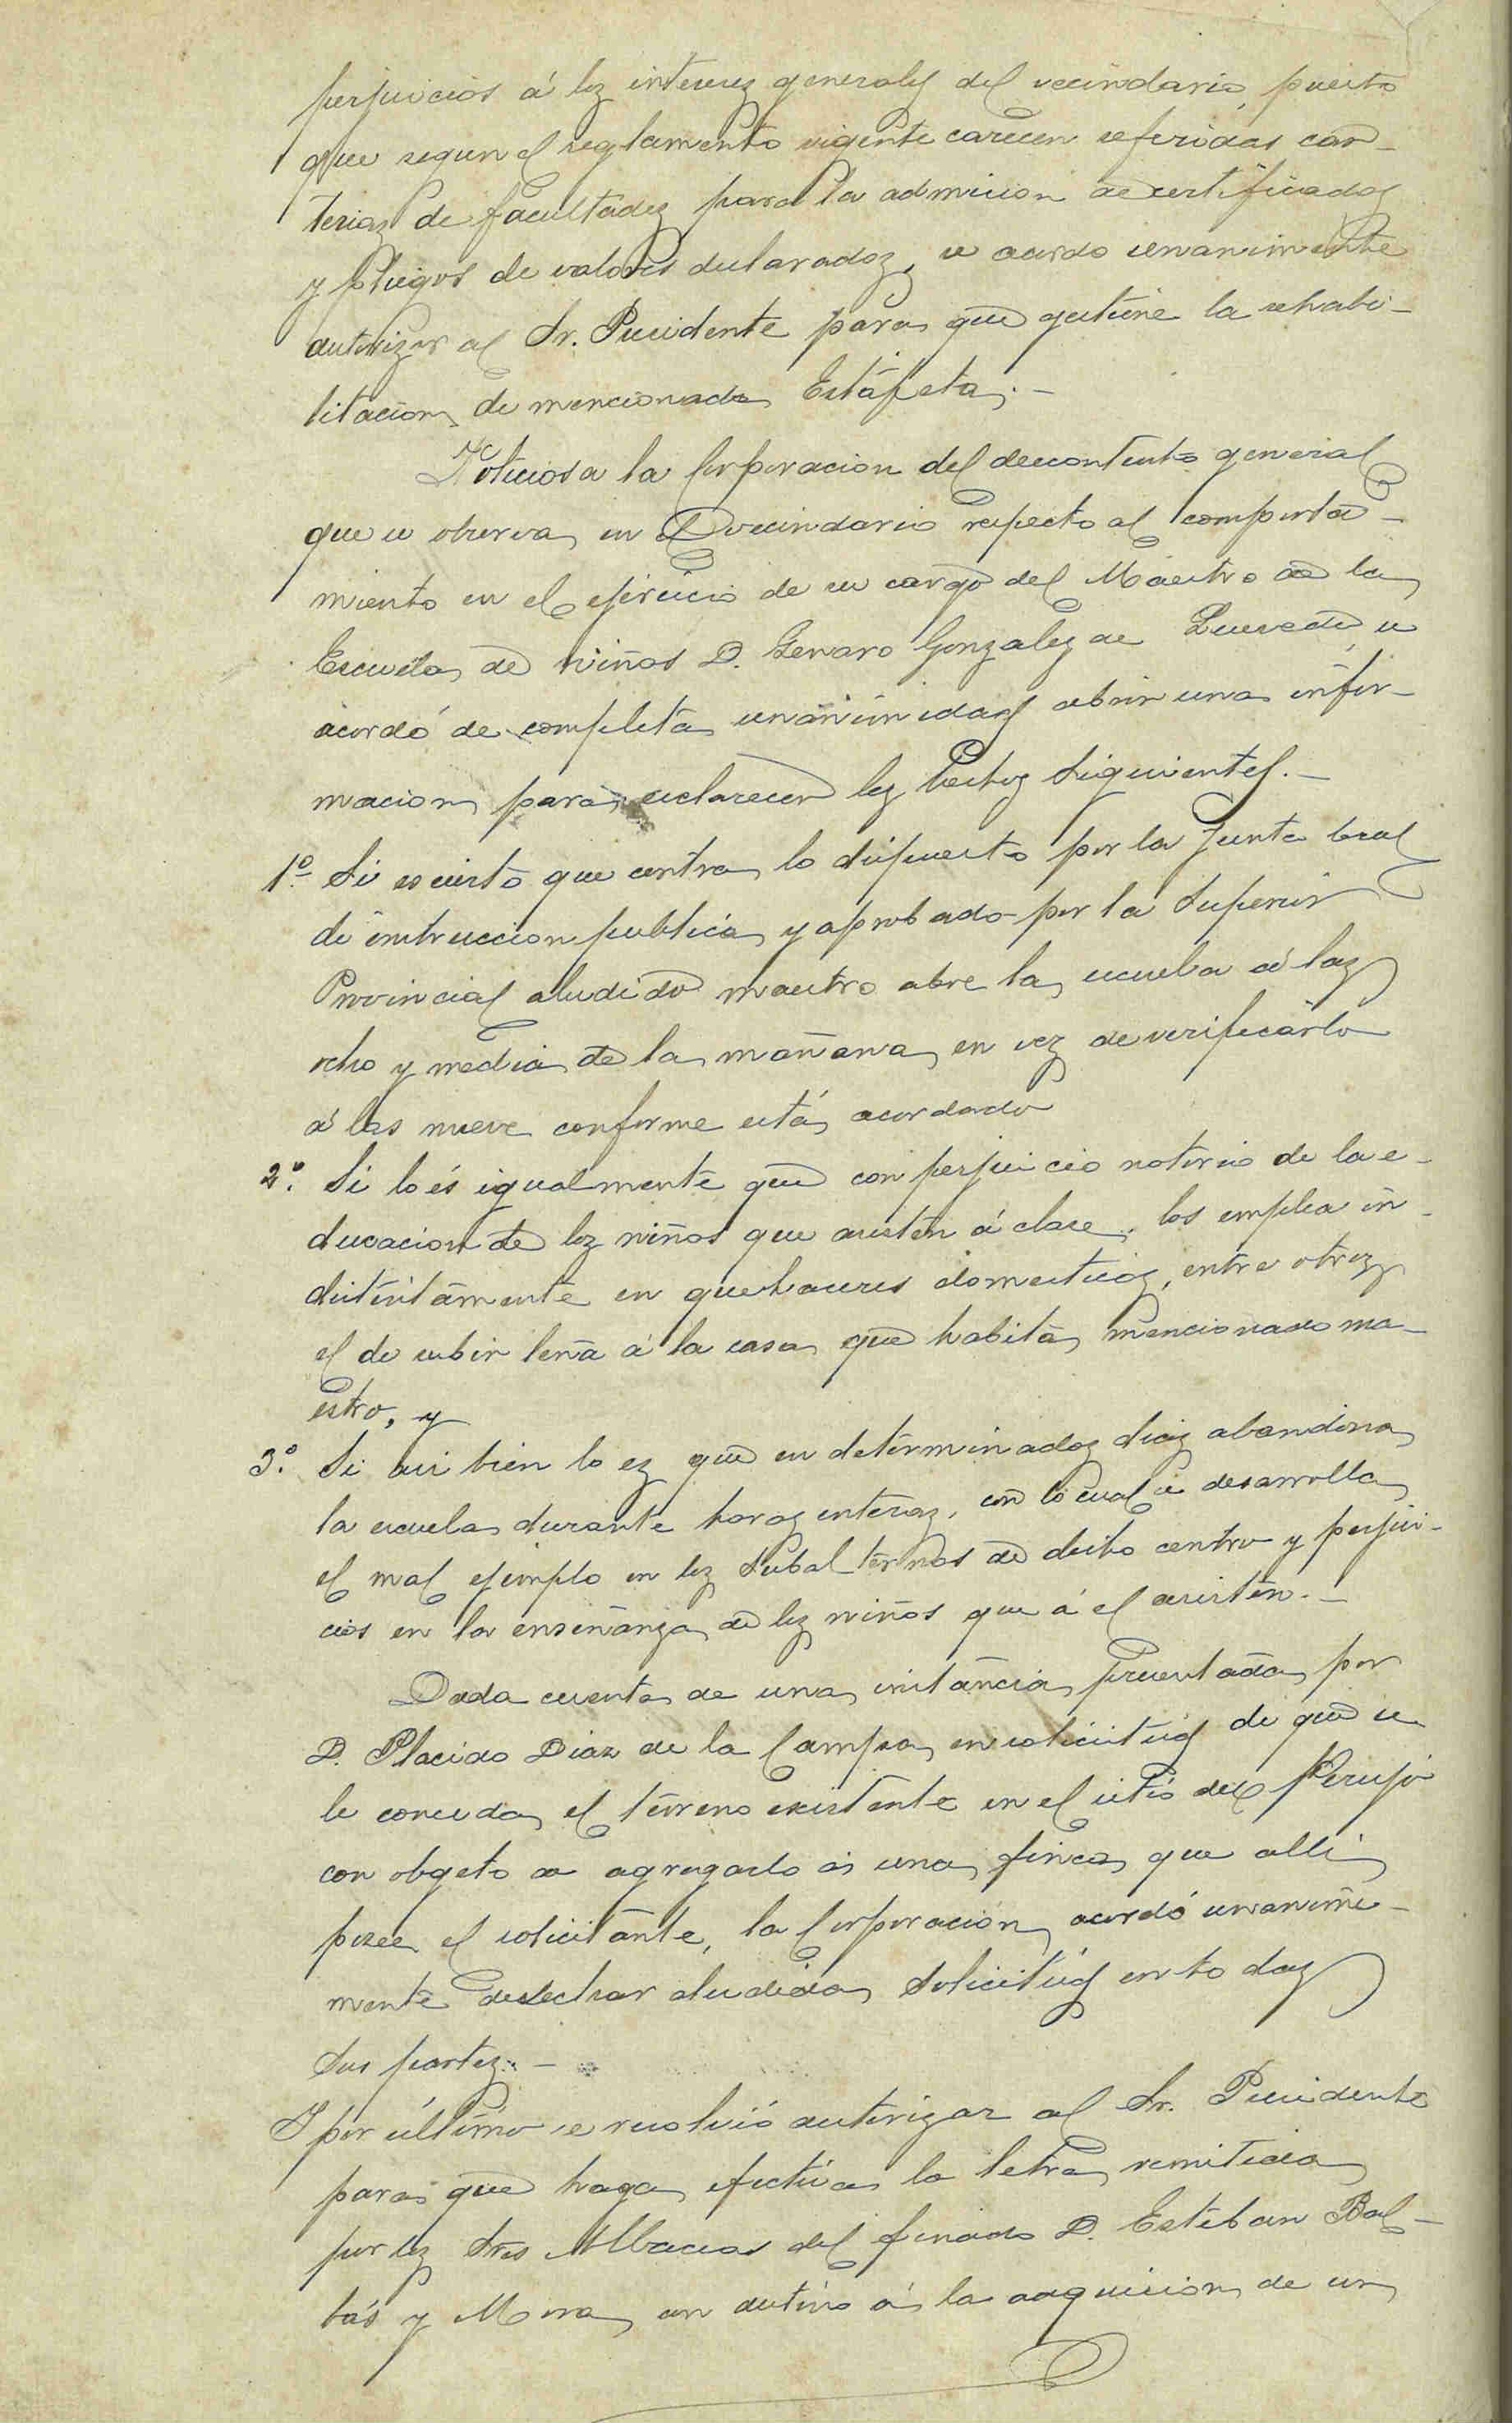 perjuicios á los intereses generales del vecindario, puesto
que segun el reglamento vigente carecen referidas car-
terias de facultades para la admision de certificados
y pliegos de valores declarados, se acordo unanimente
autorizar al Sr. Presidente para que gestione la rehabi-
litacion de mencionada Estafeta.-
Noticiosa la Corporacion del descontento general
que se observa en el vecindario respecto al comporta-
miento en el ejercicio de su cargo del Maestro de la
Escuela de niños D. Genaro Gonzalez de Quevedo, se
acordó de completa unanimidad abrir una infor-
macion para esclarecer los hechos siguientes.-
1º Si es cierto que contra lo dispuesto por la Junta local
de instruccion publica y aprobado por la Superior
Provincial aludido maestro abre la escuela á las
ocho y media de la mañana en vez de verificarlo
á las nueve conforme está acordado
2º. Si lo és igualmente que con perjuicio notorio de la e-
ducacion de los niños que asisten á clase, los emplea in-
distintamente en quehaceres domesticos, entre otros
el de subir leña á la casa que habita mencionado ma-
estro, y
3º. Si asi bien lo es que en determinados dias abandona
la escuela durante horas enteras, con lo cual se desarrolla
el mal ejemplo en los subalternos de dicho centro y perjui-
cios en la enseñanza de los niños que á el asisten.-
Dada cuenta de una instancia presentada por
D. Placido Diaz de la Campa en solicitud de que se
le conceda el terreno existente en el sitio del
con objeto de agregarlo á una finca que alli
posee el solicitante, la Corporación acordó unanime-
mente desechar aludida solicitud en todas
sus partes.-
Y por último se resolvió autorizar al Sr. Presidente
para que haga efectiva la letra remitida
por los Sres Albaceas del finado D. Esteban Bal-
bás y Mora con destino á la adquision de un